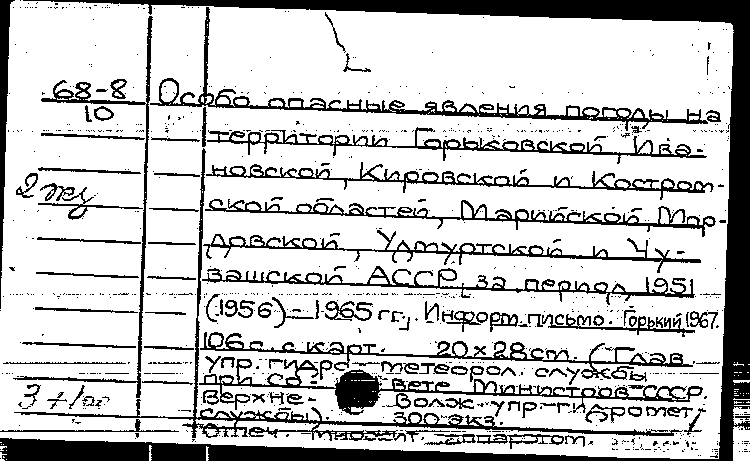 68-8 Особо опасные явления погоды на
10
территории Горьковской, Ива-
новской, Кировской и Костром-
2 жу
ской областей, Марийской, Мор-
довской, Удмуртской и Чу-
вашской АССР за период 1951
(1956) - 1965 гг. Информ. письмо. Горький, 1967.
106 с. с карт. 20×28 cm. (Глав.
упр. гидро-метеорол. службы
при Со- вете Министров СССР.
3 +1
Верхне- Волж. упр. гидромет-
службы). 300 экз.
Отпеч. множит. аппаратом.